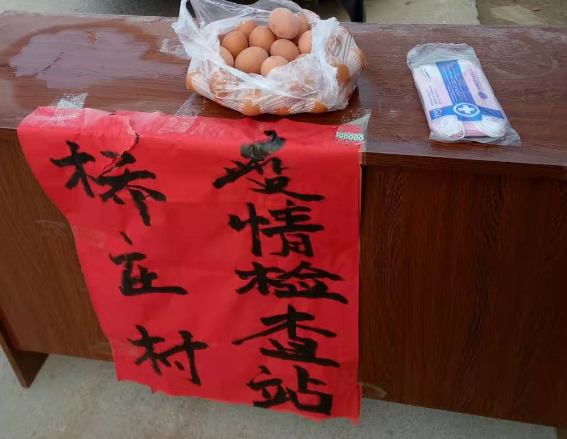 疫情检查站
桥庄村